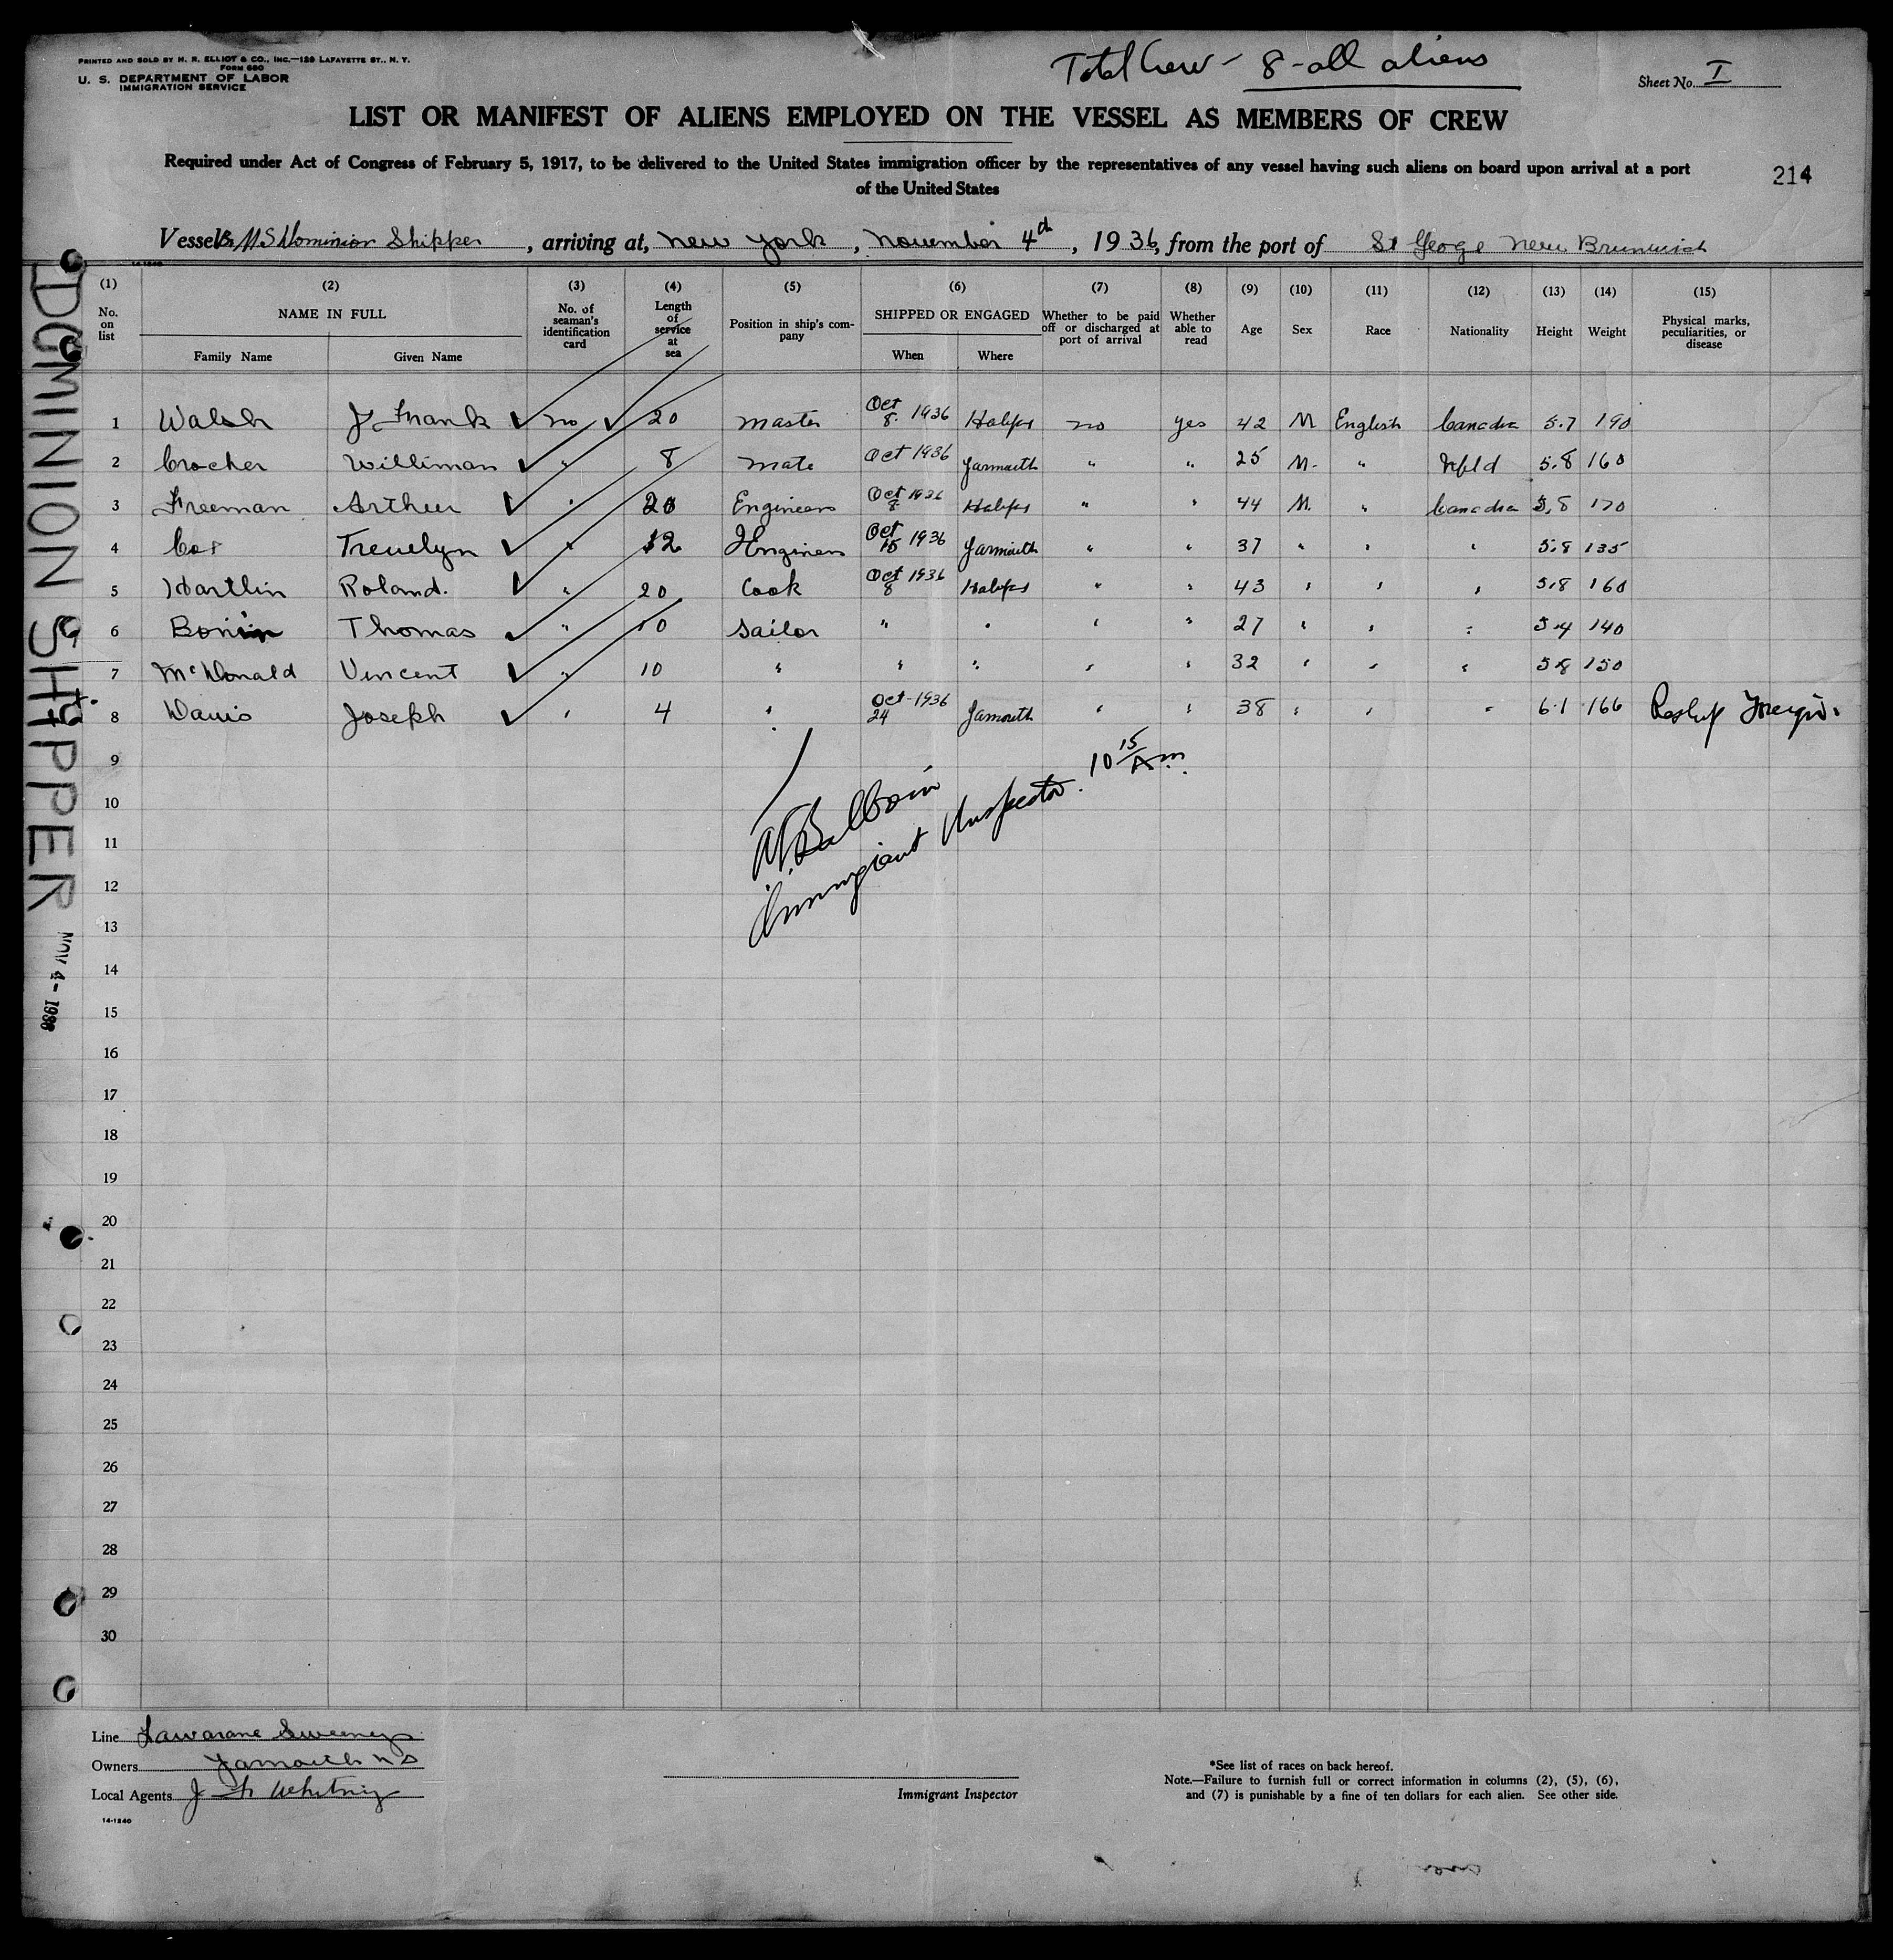 PRINTED AND SOLD BY H. R. ELLIOT & CO., INC.—129 LAFAYETTE ST., N. Y.
FORM 680
U. S. DEPARTMENT OF LABOR
IMMIGRATION SERVICE
Total Crew - 8 - all aliens
Sheet No. I
LIST OR MANIFEST OF ALIENS EMPLOYED ON THE VESSEL AS MEMBERS OF CREW
Required under Act of Congress of February 5, 1917, to be delivered to the United States immigration officer by the representatives of any vessel having such aliens on board upon arrival at a port
of the United States
214
Vessel Br MS Dominion Shipper, arriving at, New York, November 4th, 1936, from the port of St George New Brunswick
14-1240
(1) (2) (3) (4) (5) (6) (7) (8) (9) (10) (11) (12) (13) (14) (15)
No. on list NAME IN FULL Family Name Given Name No. of seaman's identification card Length of service at sea Position in ship's company SHIPPED OR ENGAGED When Where Whether to be paid off or discharged at port of arrival Whether able to read Age Sex Race Nationality Height Weight Physical marks, peculiarities, or disease
1 Walsh J Frank no 20 Master Oct 8. 1936 Halifax no yes 42 M English Canadian 5.7 190
2 Crocker Williman " 8 Mate Oct 1936 Yarmouth " " 25 M. " Nfld 5.8 160
3 Freeman Arthur " 20 Engineer Oct 8 1936 Halifax " " 44 M. " Canadian 5.8 170
4 Cox Trevelyn " 12 Engineer Oct 15 1936 Yarmouth " " 37 " " " 5.8 135
5 Hartlin Roland. " 20 Cook Oct 8 1936 Halifax " " 43 " " " 5.8 160
6 Thomas " 10 Sailor " " " " 27 " " " 5.4 140
7 McDonald Vincent " 10 " " " " " 32 " " " 5.8 150
8 Davis Joseph " 4 " Oct 24 1936 Yarmouth " " 38 " " " 6.1 166 Reship Foreign.
9
10
11
12
13
14
15
16
17
18
19
20
21
22
23
24
25
26
27
28
29
30
Immigrant Inspector. 10 15 Am.
DOMINION SHIPPER
NOV 4 - 1936
Line Lawrence Sweeney
Owners Yarmouth N S
Local Agents J H Whitney
14-1240
Immigrant Inspector
*See list of races on back hereof.
Note.—Failure to furnish full or correct information in columns (2), (5), (6),
and (7) is punishable by a fine of ten dollars for each alien. See other side.